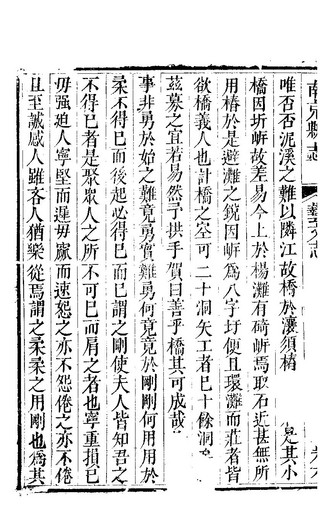 南 縣志 藝文志
唯否否泥溪之難以隣江故橋於瀼須樁 是其小
橋因圻㟁故差易今上於楊灘有碕㟁焉取石近甚無所
用樁於是避灘之銳因㟁為八字圩便且環灘而莊者皆
欲橋義人也計橋之空二十洞矢工者巳十餘洞
茲募之宜若易然予拱手賀曰善乎橋其可成哉
事非勇於始之難勇竟勇實難勇何竟竟於剛剛何用用於
柔不得巳而後起必得巳而巳謂之剛使夫人皆知吾之
不得巳者是聚眾人之所不可巳而肩之者也寧重損巳
毋強迫人寧堅而遲毋脃而速怨之亦不怨倦之亦不倦
且至誠感人雖客人猶樂從焉謂之柔柔之用剛也為其